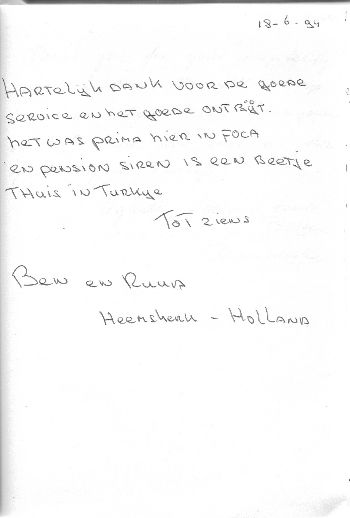 18-6-94
HARTELIJK DANK VOOR DE GOEDE
SERVICE EN HET GOEDE ONTBIJT.
HET WAS PRIMA HIER IN FOCA
EN PENSION SIREN IS EEN BEETJE
THUIS IN TURKYE
TOT ZIENS
BEN EN RUUD
HEEMSKERK - HOLLAND